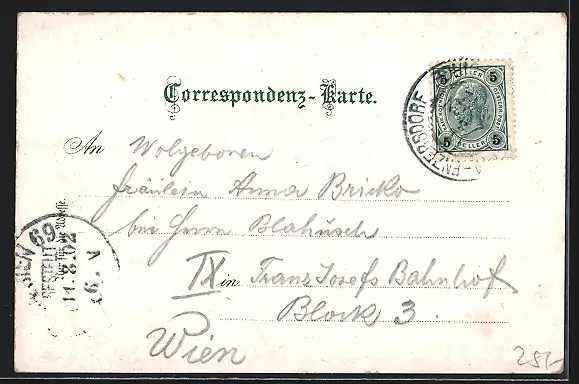 Correspondenz-Karte.
An Wolgeboren
Fräulein Anna Bricko
bei Herrn Blahusch
IX in Franz Josefs Bahnhof
Block 3.
Wien
5 HELLER 5
5 HELLER 5
-ENZERSDORF
WIEN 69
BESTELLT
11.8.02